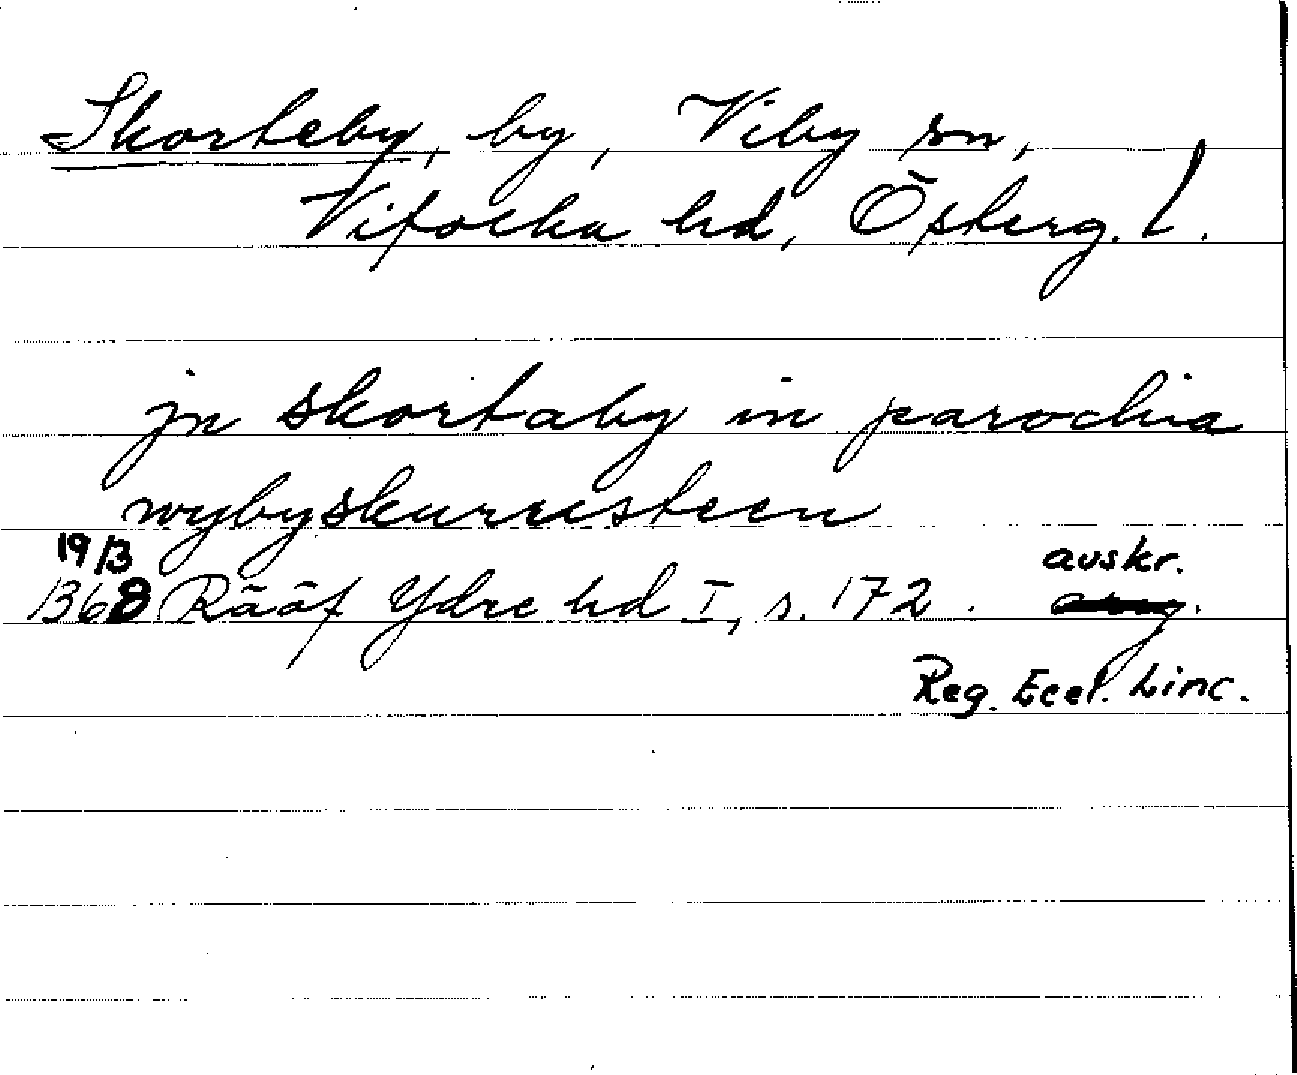 Skorteby, by, Viby sn,
Vifolka hd, Österg. l.
jn skortaby in parochia
wybyskurusteen
19/3 avskr.
1368 Rääf Ydre hd I, s. 172.
Reg. Eccl. Linc.